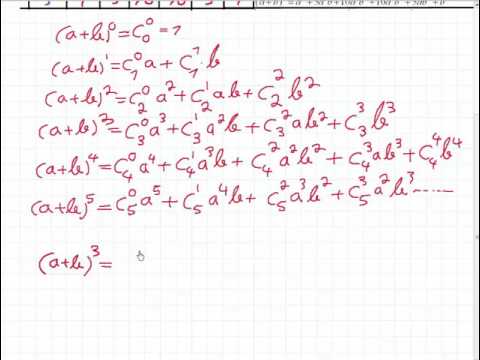 (a+b)⁰ = C₀⁰ = 1
(a+b)¹ = C₁⁰a + C₁¹b
(a+b)² = C₂⁰a² + C₂¹ab + C₂²b²
(a+b)³ = C₃⁰a³ + C₃¹a²b + C₃²ab² + C₃³b³
(a+b)⁴ = C₄⁰a⁴ + C₄¹a³b + C₄²a²b² + C₄³ab³ + C₄⁴b⁴
(a+b)⁵ = C₅⁰a⁵ + C₅¹a⁴b + C₅²a³b² + C₅³a²b³ ......
(a+b)³ =